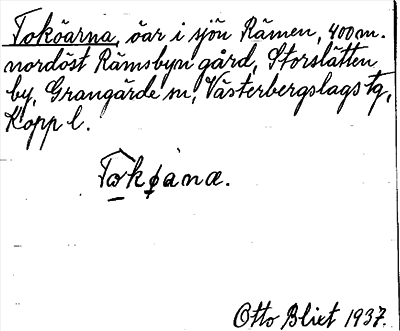 Toköarna, öar i sjön Rämen, 400 m.
nordöst Rämsbyn gård, Storslätten
by, Grangärde sn, Västerbergslags tg,
Kopp l.
Tokøana.
Otto Blixt 1937.